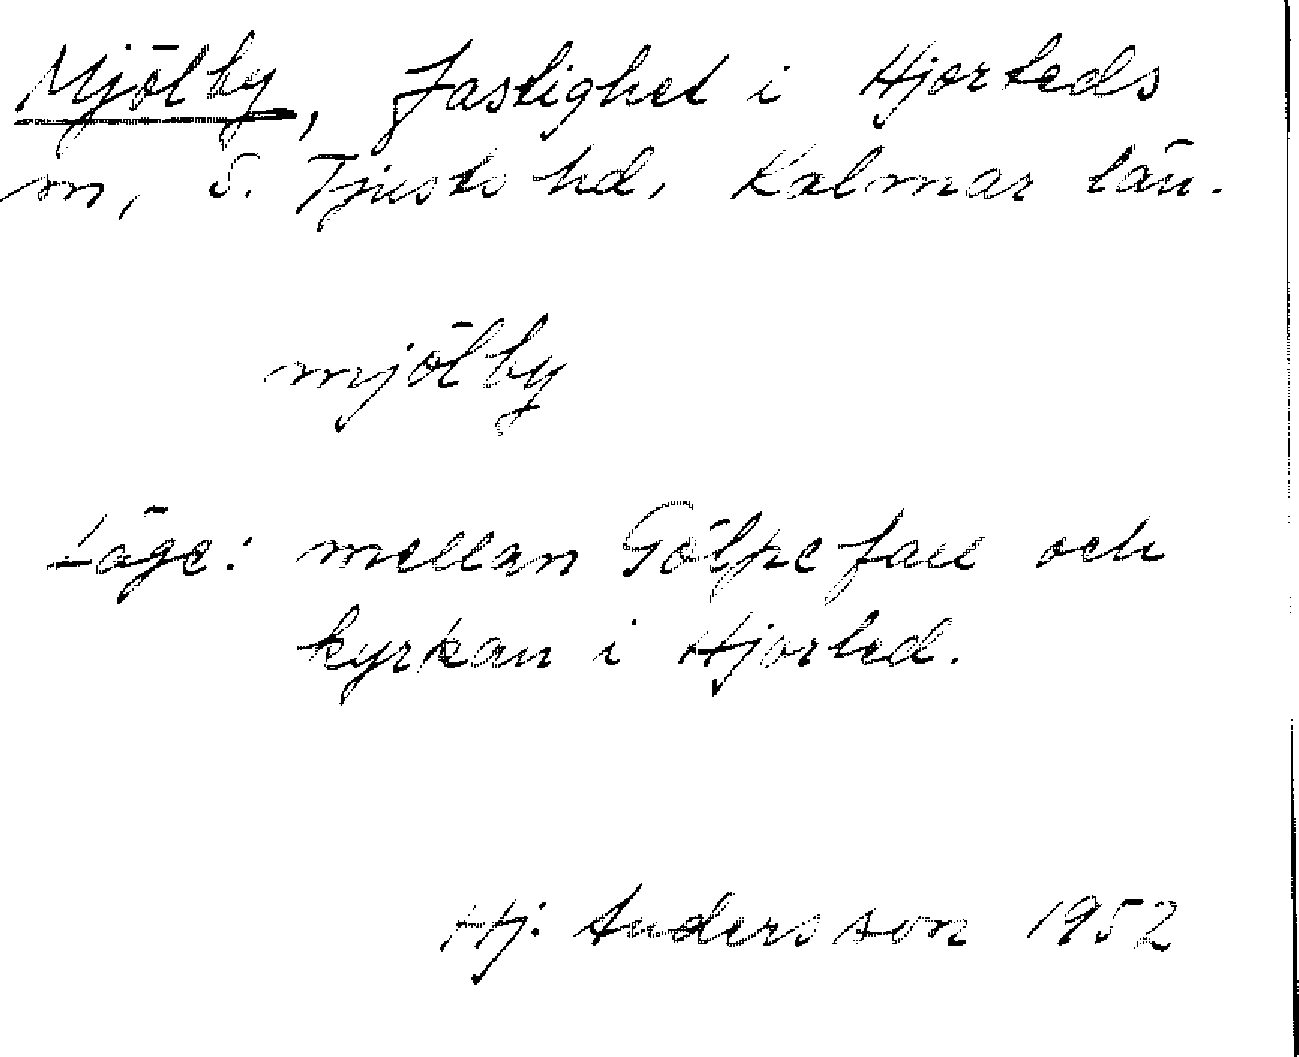 Mjölby, fastighet i Hjorteds
m, S. Tjusts hd, Kalmar län.
mjölby
Läge: mellan Gölpefall och
kyrkan i Hjorted.
Hj. Andersson 1952